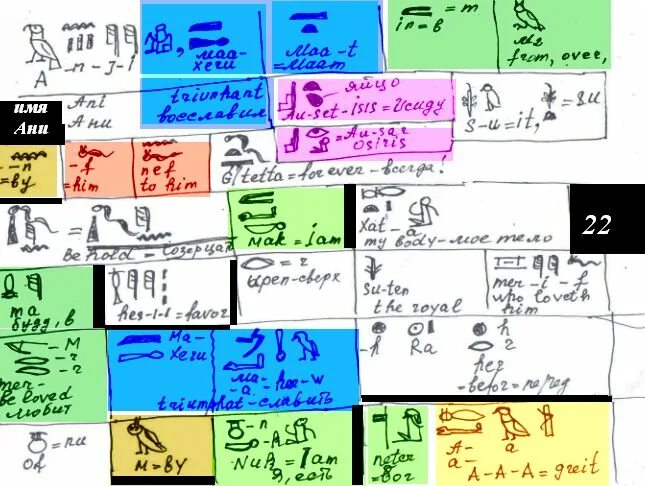 A -n-J-i
маа-
хеru
Маа-t
=Маат
in-в = m
M2
from, over,
имя
Ани
Ani
Ани
triumhant
восславил
яйцо
Au-set-isis=Исиду
=Au-sar
osiris
S-u=it, =su
--n
=by
-f
=him
nef
to him
G/tetta=for ever-всегда!
=
Behold-Созерцат
mak=iam
Xat-a
my body-мое тело
22
ma
будд, в
hes-i-i=favor
=r
Ареп-сверх
su-ten
the royal
mer-i-f
who loveth
him
-M
-r
-r
mer-
beloved
любит
Ma-
Xeru
ma- her-w
-a-
triumphat-славить
-h Ra h
her
-befor=перед
=nu
of
M=BY
-n
-k
Nuk=Iam
Я, есть
neter
=бог
A- a
a-
A-A-A=greit